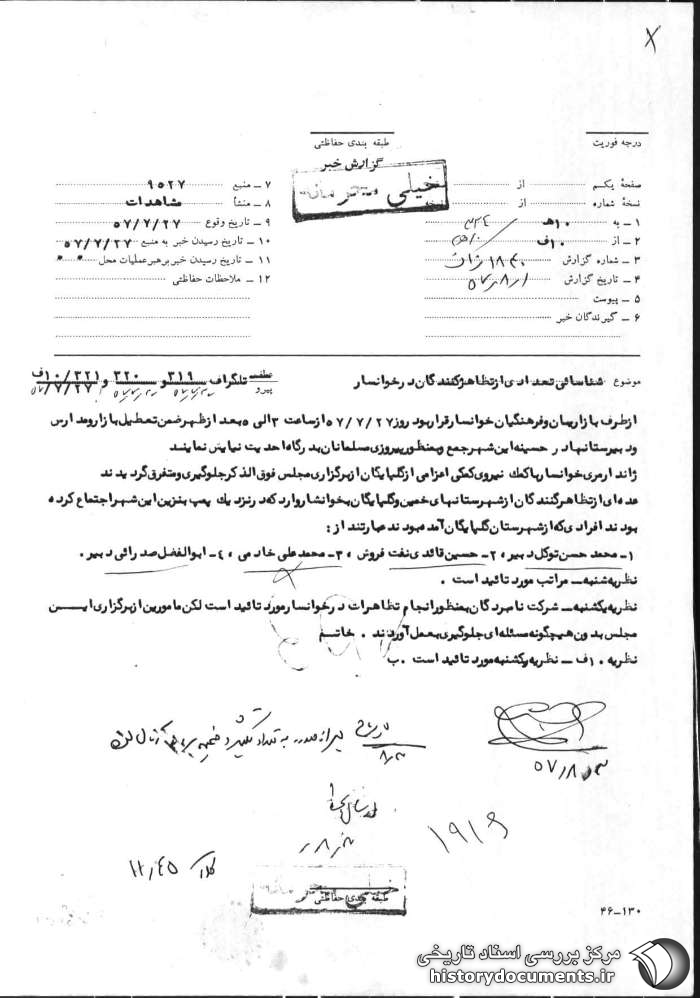 درجه فوریت
طبقه بندی حفاظتی
گزارش خبر
خیلی محرمانه
صفحه یکم از
نسخه شماره از
۱ـ به ۱۰هـ
۲ـ از ۱۰ف
۳ـ شماره گزارش
۴ـ تاریخ گزارش
۵ـ پیوست
۶ـ گیرندگان خبر
۷ـ منبع ۹۵۲۷
۸ـ منشأ مشاهدات
۹ـ تاریخ وقوع ۵۷/۷/۲۷
۱۰ـ تاریخ رسیدن خبر به منبع ۵۷/۷/۲۷
۱۱ـ تاریخ رسیدن خبر برهبر عملیات محل
۱۲ـ ملاحظات حفاظتی
موضوع شناسائی تعدادی از تظاهرکنندگان در خوانسار
عطف پیرو تلگراف ۳۱۹ و ۳۲۰ و ۱۰/۳۲۱ف ۵۷/۷/۲۷
از طرف بازاریان و فرهنگیان خوانسار قرار بود روز ۵۷/۷/۲۷ از ساعت ۳ الی ۵ بعد از ظهر ضمن تعطیل بازار و مدارس
و دبیرستانها در حسینه این شهر جمع و بمنظور پیروزی مسلمانان بدرگاه احدیت نیایش نمایند
ژاندارمری خوانسار با کمک نیروی کمکی اعزامی از گلپایگان از برگزاری مجلس فوق الذکر جلوگیری و متفرق گردیدند
عده ای از تظاهرکنندگان از شهرستانهای خمین و گلپایگان بخوانسار وارد که در نزدیک پمپ بنزین این شهر اجتماع کرده
بودند افرادی که از شهرستان گلپایگان آمده بودند عبارتند از :
۱ـ محمد حسن توکل دبیر ، ۲ـ حسین قائدی نفت فروش ، ۳ـ محمد علی خادمی ، ۴ـ ابوالفضل صدرائی دبیر .
نظریه شنبه ـ مراتب مورد تائید است .
نظریه یکشنبه ـ شرکت نامبردگان بمنظور انجام تظاهرات در خوانسار مورد تائید است لکن مامورین از برگزاری این
مجلس بدون هیچگونه مسئله ای جلوگیری بعمل آوردند . خاتم
نظریه ۱۰ف ـ نظریه یکشنبه مورد تائید است . ب
۱۹۱۶
خیلی محرمانه
طبقه بندی حفاظتی
۴۶ـ۱۳۰
مرکز بررسی اسناد تاریخی
historydocuments.ir